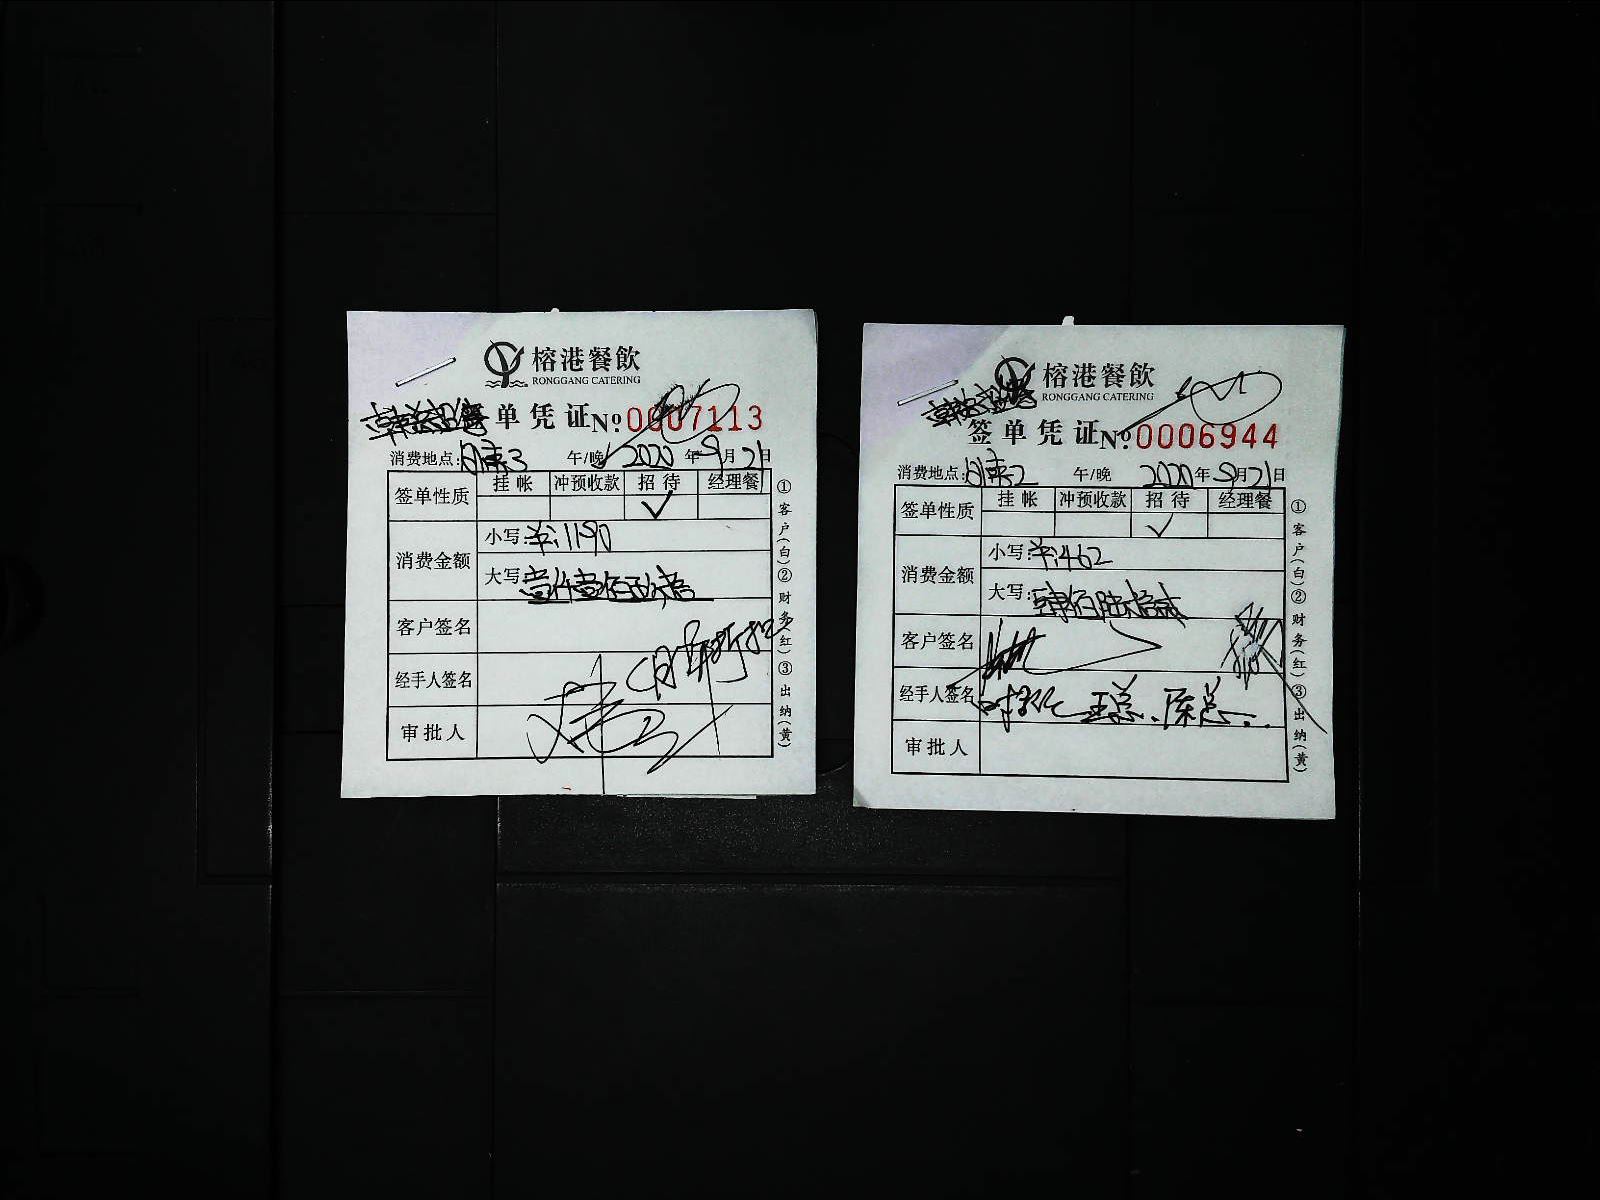 榕港餐飲
RONGGANG CATERING
单凭证№0007113
消费地点: 午/晚 2020年9月21日
签单性质 挂帐 冲预收款 招待 经理餐
✓
消费金额 小写: 1190
大写: 壹仟壹佰玖拾
客户签名
经手人签名
审批人
①客户(白)②财务(红)③出纳(黄)
榕港餐飲
RONGGANG CATERING
签单凭证№0006944
消费地点: 午/晚 2020年9月21日
签单性质 挂帐 冲预收款 招待 经理餐
✓
消费金额 小写: 462
大写: 肆佰陆拾贰
客户签名
经手人签名 王总、陈总
审批人
①客户(白)②财务(红)③出纳(黄)